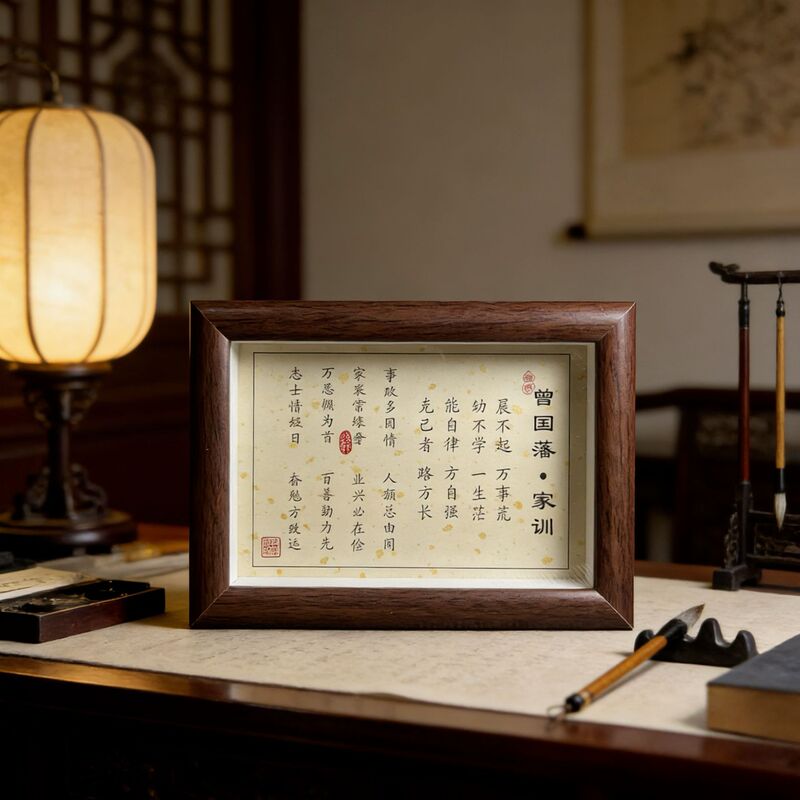 曾国藩•家训
晨不起 万事荒
幼不学 一生茫
能自律 方自强
克己者 路方长
事败多情 人总由同
家常 业兴必在俭
万恶为首 百善力先
志士情短日 奋勉方致运